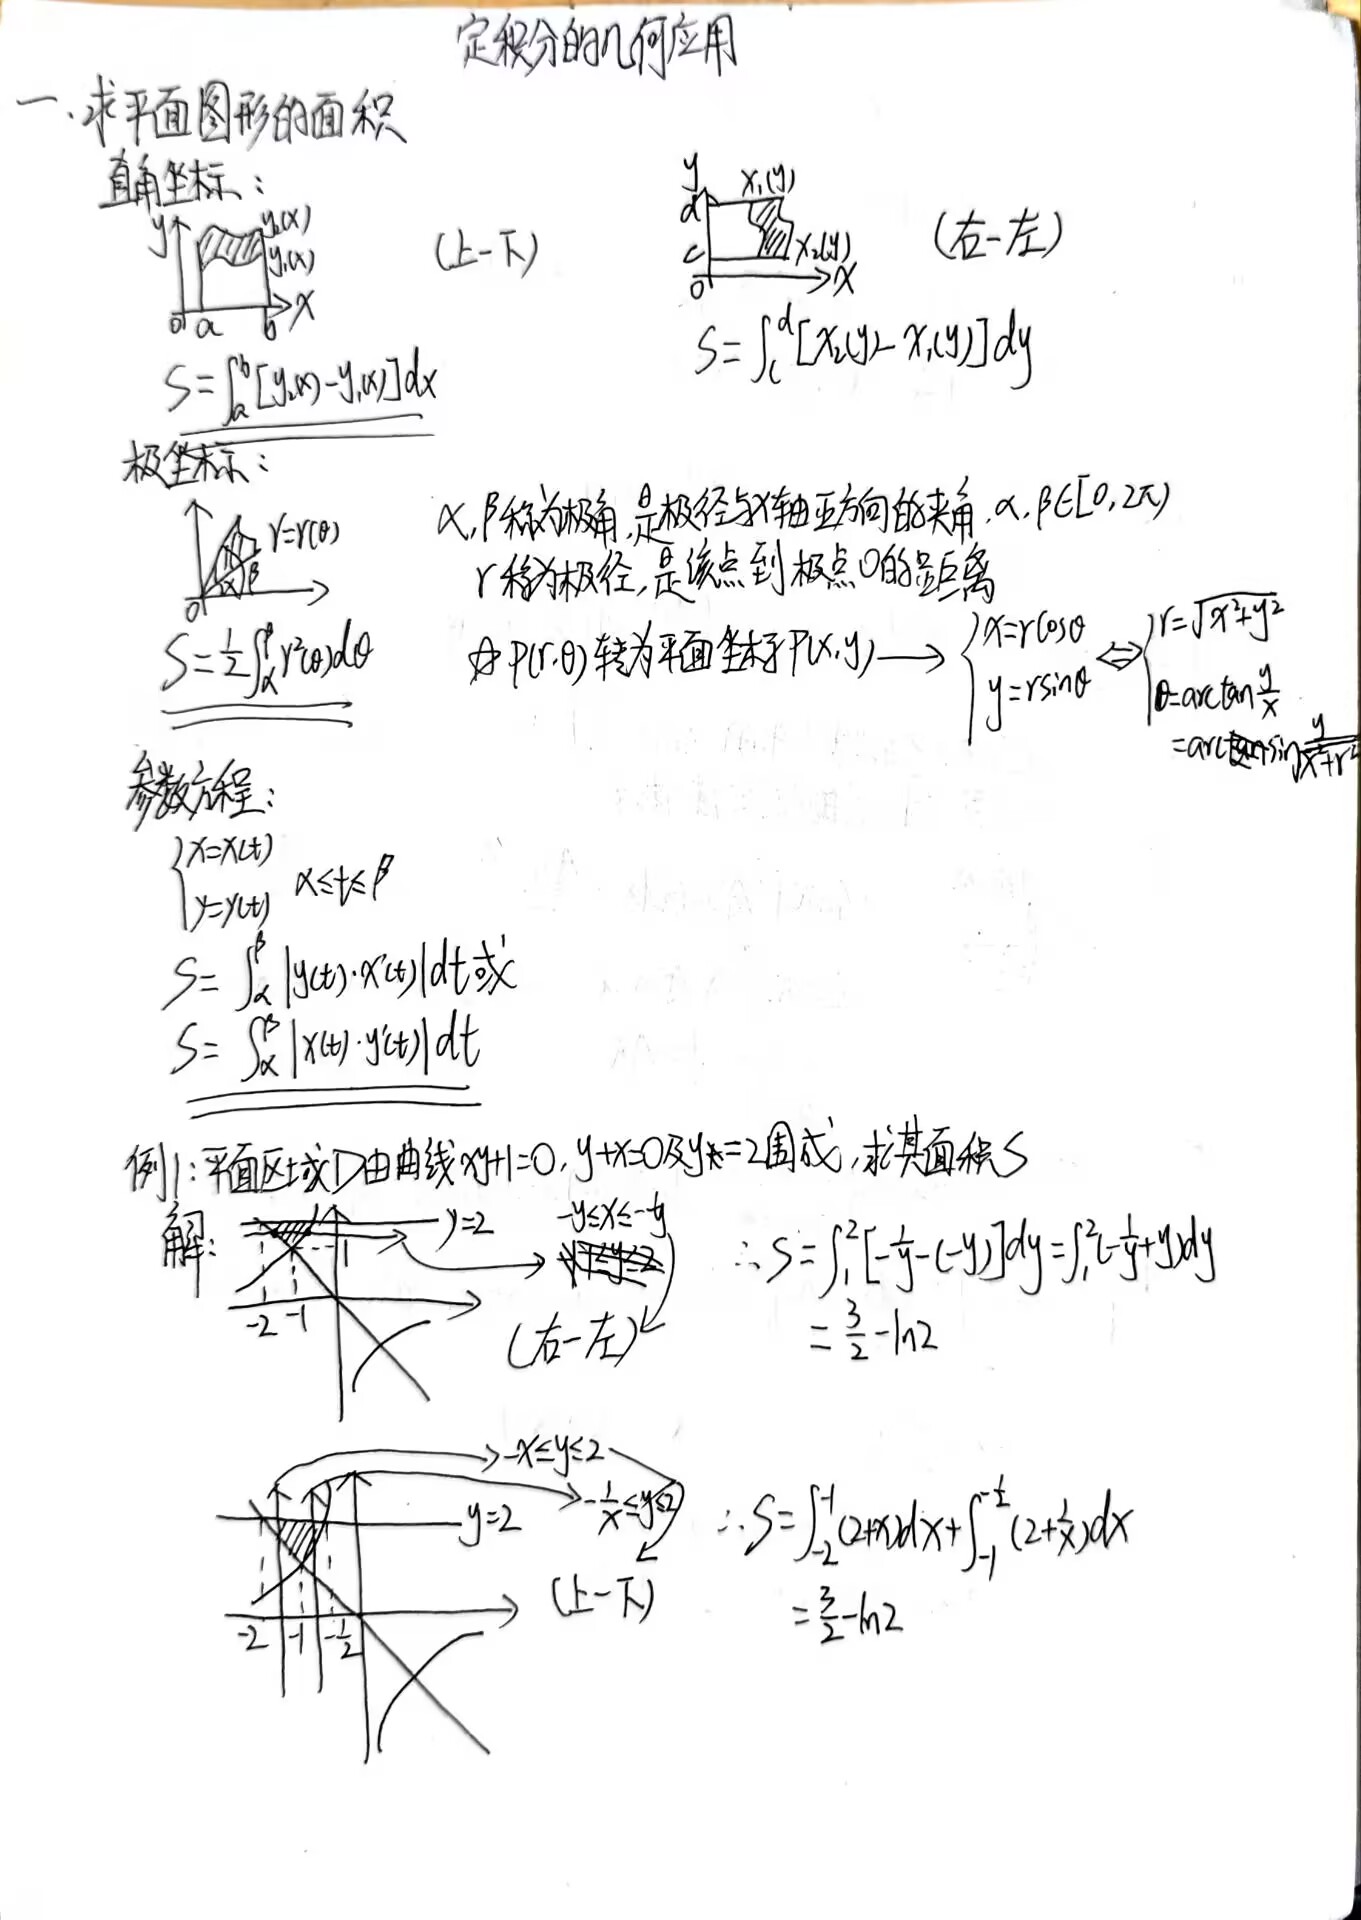 定积分的几何应用
一、求平面图形的面积
直角坐标：
y y₂(x) y₁(x) 0 a b x
(上-下)
y d x₁(y) c x₂(y) 0 x
(右-左)
S=∫ₐᵇ[y₂(x)-y₁(x)]dx
S=∫_c^d[x₂(y)-x₁(y)]dy
极坐标：
r=r(θ) α β 0
α,β称为极角,是极径与x轴正方向的夹角,α,β∈[0,2π)
r称为极径,是该点到极点0的距离
S=½∫_α^β r²(θ)dθ
P(r,θ)转为平面坐标P(x,y)→{x=rcosθ y=rsinθ ⇔ {r=√(x²+y²) θ=arctan y/x
=arcsin y/√(x²+r²)
参数方程：
{x=x(t) y=y(t) α≤t≤β
S=∫_α^β|y(t)·x'(t)|dt或
S=∫_α^β|x(t)·y'(t)|dt
例1:平面区域D由曲线xy+1=0,y+x=0及y=2围成,求其面积S
解:
y=2 1 -2 -1
-y≤x≤-1/y
(右-左)
∴S=∫₁²[-1/y-(-y)]dy=∫₁²(-1/y+y)dy
=3/2-ln2
-x≤y≤2
-1/x≤y≤2
y=2 -2 -1 -1/2
(上-下)
∴S=∫₋₂⁻¹(2+x)dx+∫₋₁^(-1/2)(2+1/x)dx
=3/2-ln2